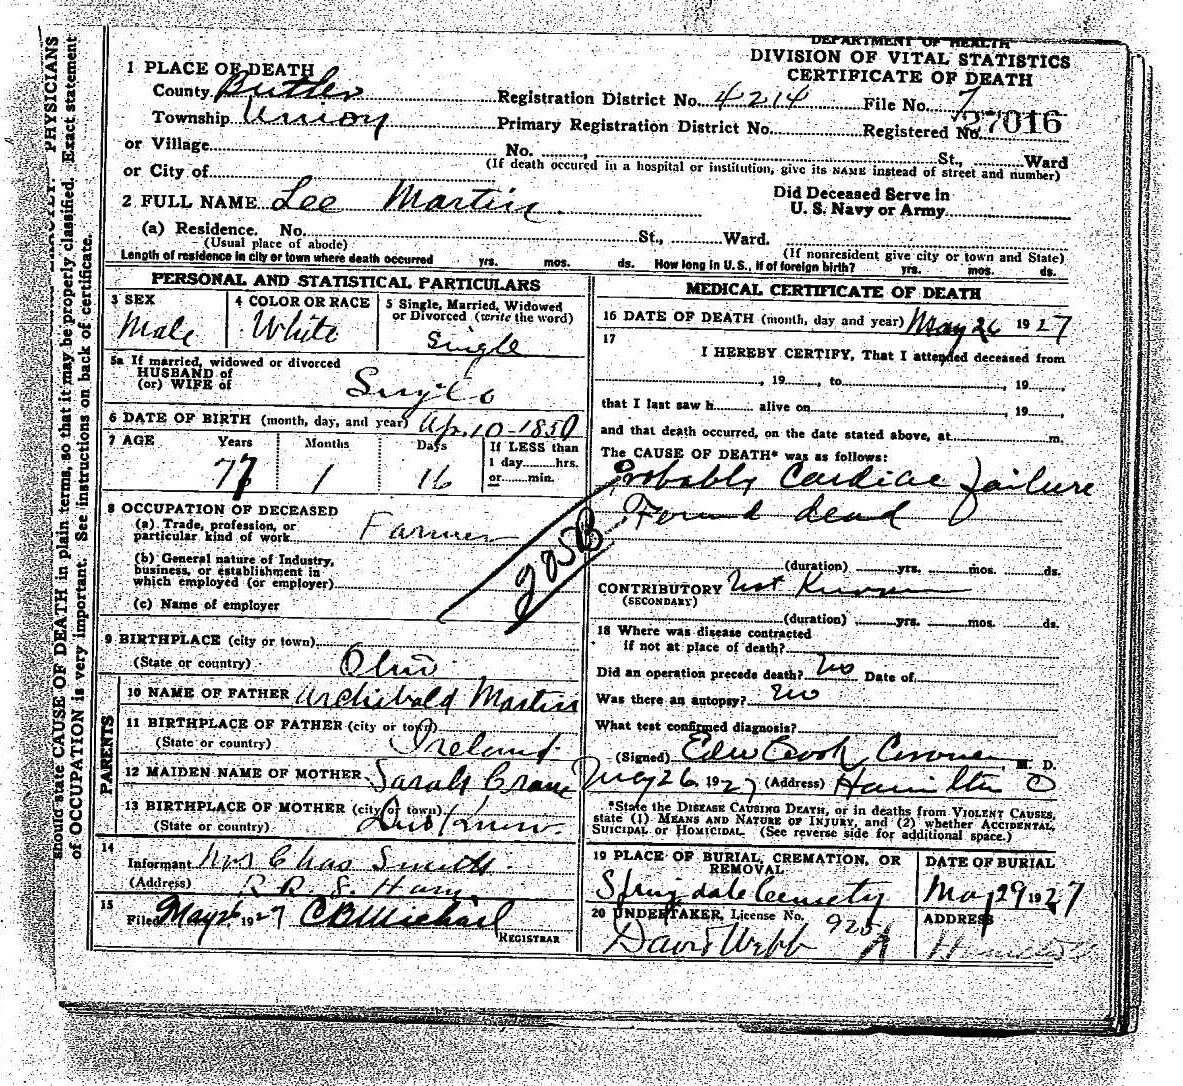 DEPARTMENT OF HEALTH
DIVISION OF VITAL STATISTICS
CERTIFICATE OF DEATH
1 PLACE OF DEATH
County Butler Registration District No. 4214 File No. 7
27016
Township Union Primary Registration District No. Registered No.
or Village No. , St., Ward
(If death occured in a hospital or institution, give its NAME instead of street and number)
or City of
2 FULL NAME Lee Martin
Did Deceased Serve in
U. S. Navy or Army
(a) Residence. No. St., Ward.
(Usual place of abode) (If nonresident give city or town and State)
Length of residence in city or town where death occurred yrs. mos. ds. How long in U.S., if of foreign birth? yrs. mos. ds.
PERSONAL AND STATISTICAL PARTICULARS
3 SEX 4 COLOR OR RACE 5 Single, Married, Widowed
or Divorced (write the word)
Male White Single
5a If married, widowed or divorced
HUSBAND of
(or) WIFE of
Single
6 DATE OF BIRTH (month, day, and year) Apr. 10-1850
7 AGE Years Months Days If LESS than
1 day hrs.
or min.
77 1 16
8 OCCUPATION OF DECEASED
(a) Trade, profession, or
particular kind of work Farmer
(b) General nature of Industry,
business, or establishment in
which employed (or employer)
(c) Name of employer
9 BIRTHPLACE (city or town)
(State or country) Ohio
PARENTS
10 NAME OF FATHER Archibald Martin
11 BIRTHPLACE OF FATHER (city or town)
(State or country) Ireland
12 MAIDEN NAME OF MOTHER Sarah Crane
13 BIRTHPLACE OF MOTHER (city or town)
(State or country) Don't Know.
14
Informant Mrs Chas Smith
(Address) R.R. 8. Ham.
15
Filed May 26 1927 C B Michael
REGISTRAR
MEDICAL CERTIFICATE OF DEATH
16 DATE OF DEATH (month, day and year) May 26 1927
17
I HEREBY CERTIFY, That I attended deceased from
, 19 , to , 19 ,
that I last saw h alive on , 19 ,
and that death occurred, on the date stated above, at m.
The CAUSE OF DEATH* was as follows:
Probably Cardiac failure
Found dead
205B
(duration) yrs. mos. ds.
CONTRIBUTORY Not Known
(SECONDARY)
(duration) yrs. mos. ds.
18 Where was disease contracted
if not at place of death?
Did an operation precede death? No Date of
Was there an autopsy? No
What test confirmed diagnosis?
(Signed) Edw Cook Coroner M. D.
May 26 1927 (Address) Hamilton O
*State the DISEASE CAUSING DEATH, or in deaths from VIOLENT CAUSES,
state (1) MEANS AND NATURE OF INJURY, and (2) whether ACCIDENTAL,
SUICIDAL or HOMICIDAL. (See reverse side for additional space.)
19 PLACE OF BURIAL, CREMATION, OR
REMOVAL
DATE OF BURIAL
Springdale Cemetery May 29 1927
20 UNDERTAKER, License No. 925 A ADDRESS
David Webb
PHYSICIANS
should state CAUSE OF DEATH in plain terms, so that it may be properly classified. Exact statement
of OCCUPATION is very important. See instructions on back of certificate.